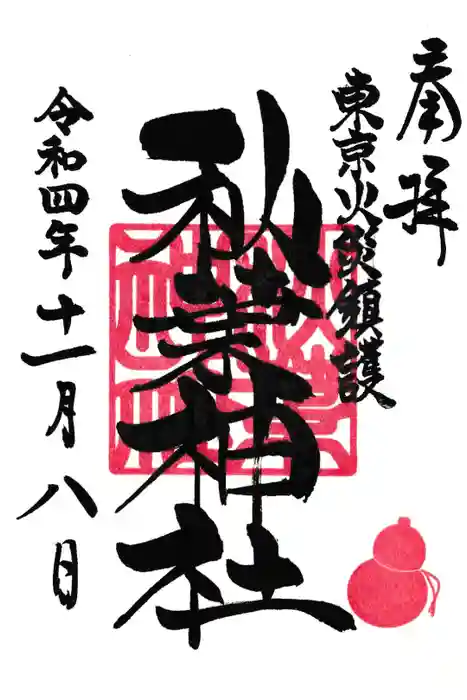 奉拝
東京火災鎮護
秋葉神社
令和四年十一月八日